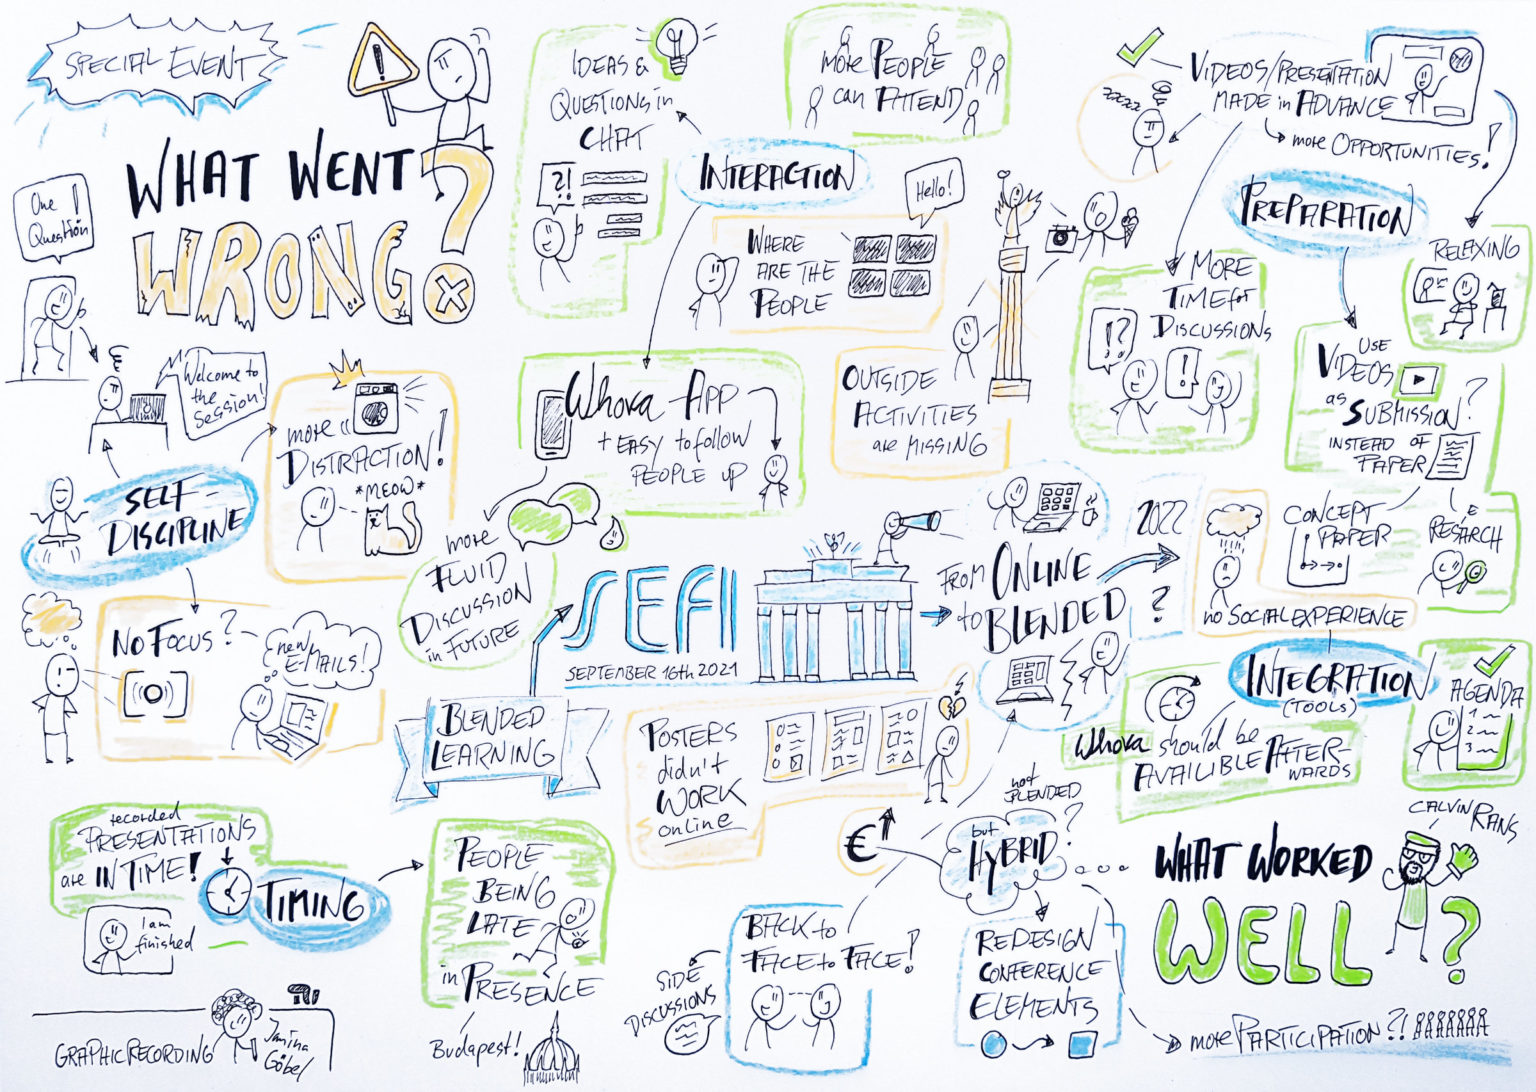 SPECIAL EVENT
WHAT WENT
WRONG?
One
Question!
Welcome to
the
Session!
SELF-
DISCIPLINE
more
DISTRACTION!
*MEOW*
NO FOCUS?
new
E-MAILS!
IDEAS &
QUESTIONS in
CHAT
?!
more PEOPLE
can ATTEND
INTERACTION
Hello!
WHERE
ARE THE
PEOPLE
OUTSIDE
ACTIVITIES
are MISSING
Whova-APP
+ EASY to follow
PEOPLE UP
more
FLUID
DISCUSSION
in FUTURE
SEFI
SEPTEMBER 16th 2021
BLENDED
LEARNING
FROM ONLINE
to BLENDED
2022
?
VIDEOS/PRESENTATION
MADE in ADVANCE
more OPPORTUNITIES!
zzzzz
PREPARATION
RELAXING
MORE
TIME for
DISCUSSIONS
!?
!
USE
VIDEOS
as SUBMISSION?
INSTEAD OF
PAPER
CONCEPT
PAPER
RESEARCH
no SOCIAL EXPERIENCE
INTEGRATION
(TOOLS)
AGENDA
1
2
3
Whova should be
AVAILIBLE AFTER-
WARDS
POSTERS
didn't
WORK
online
recorded
PRESENTATIONS
are IN TIME!
TIMING
I am
finished
PEOPLE
BEING
LATE
in PRESENCE
Budapest!
GRAPHICRECORDING
Janina
Göbel
€
not
BLENDED
but
HYBRID?
BACK to
FACE to FACE!
SIDE
DISCUSSIONS
REDESIGN
CONFERENCE
ELEMENTS
more PARTICIPATION?!
CALVIN RANS
WHAT WORKED
WELL?